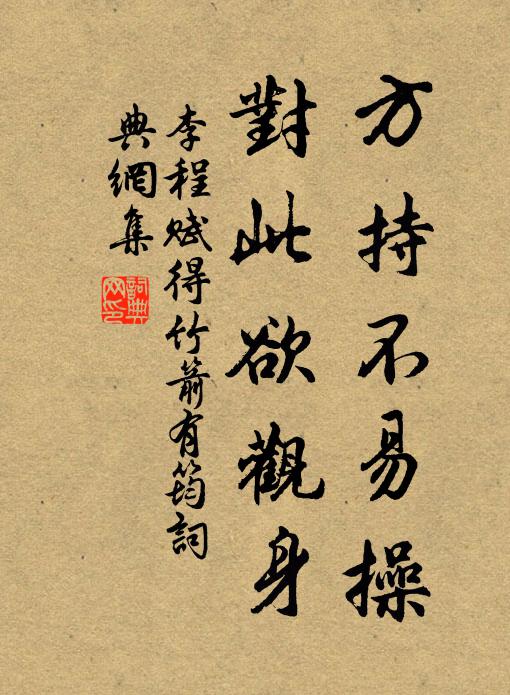 方持不易操
對此欲觀身
李程賦得竹箭有筠詞
典網集
詞典
网印